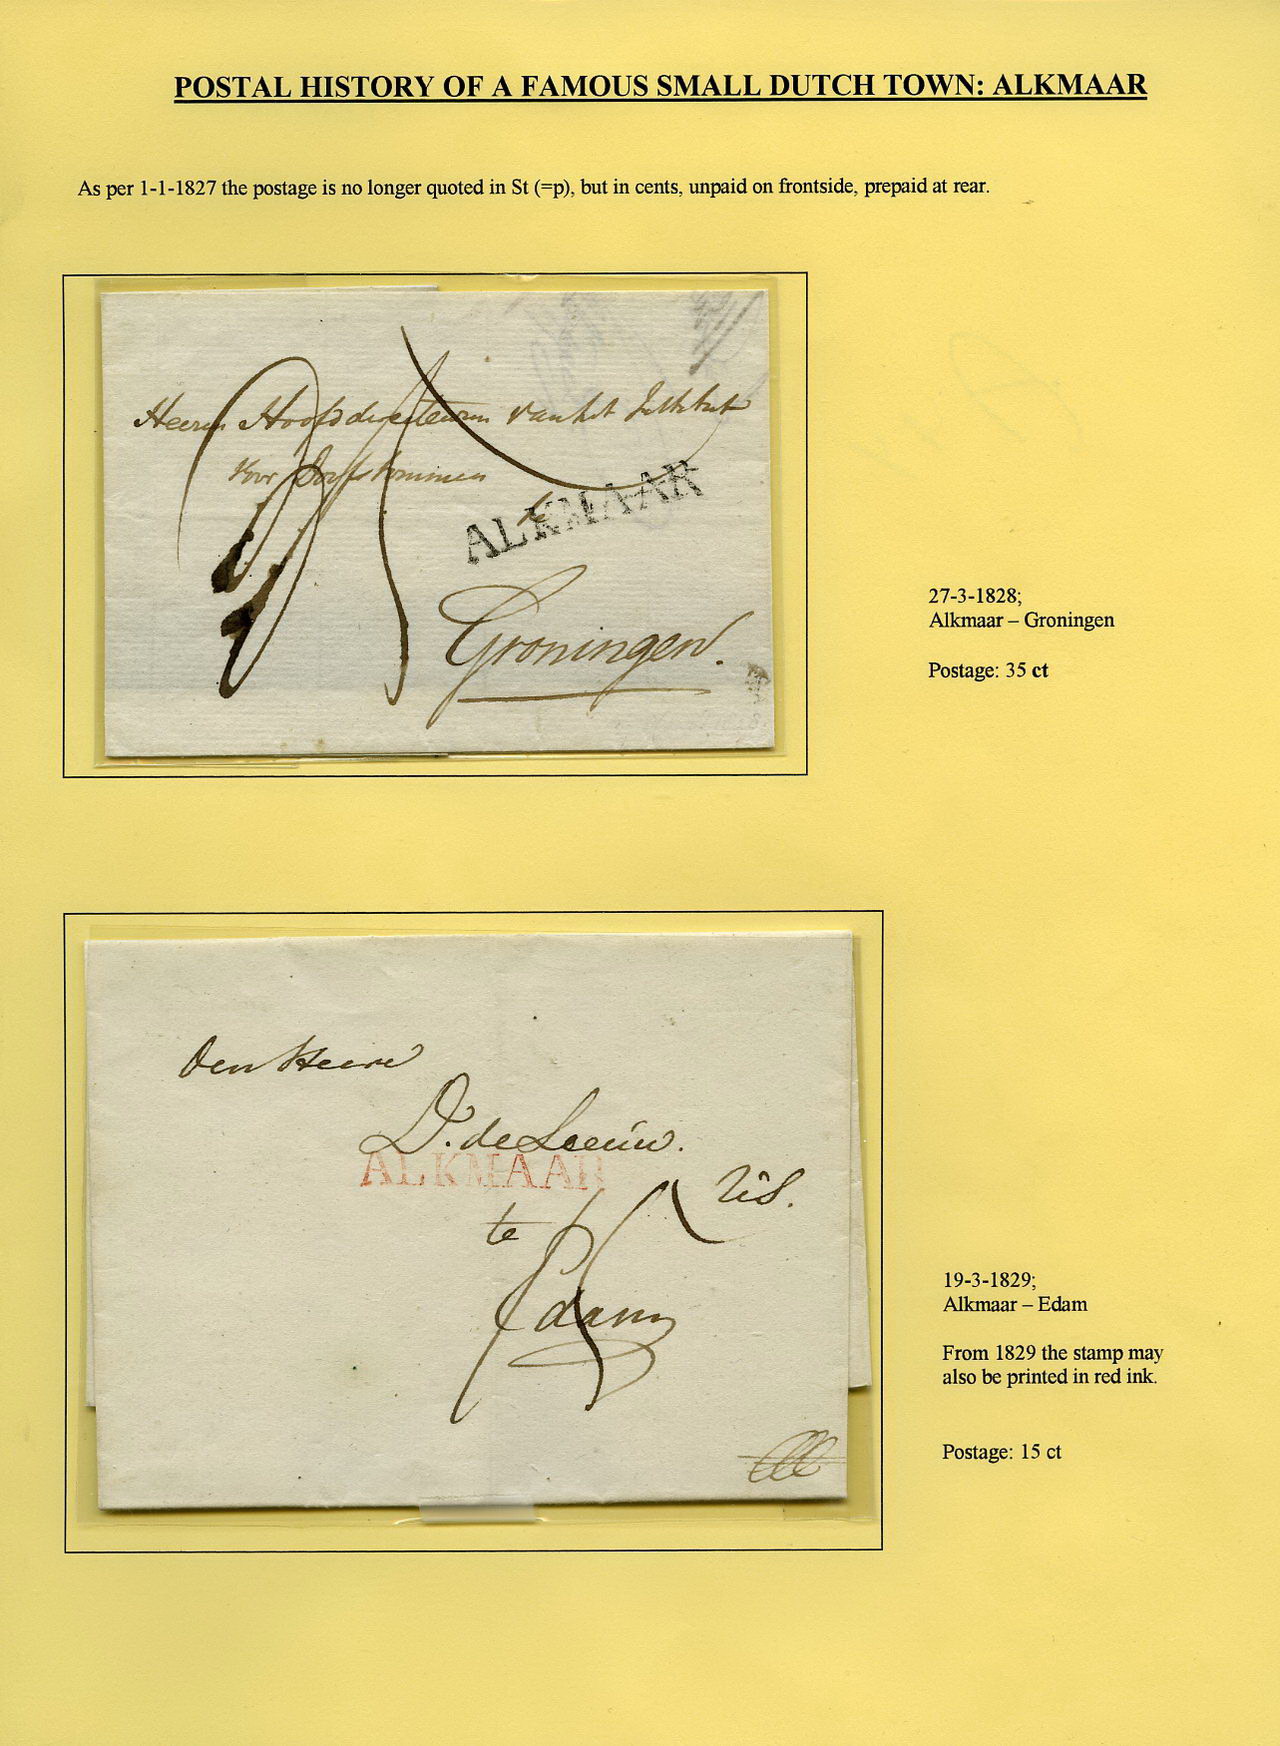 POSTAL HISTORY OF A FAMOUS SMALL DUTCH TOWN: ALKMAAR
As per 1-1-1827 the postage is no longer quoted in St (=p), but in cents, unpaid on frontside, prepaid at rear.
Heeren Hoofddirecteuren van het Instituut
voor Doofstommen
te
ALKMAAR
Groningen.
27-3-1828;
Alkmaar – Groningen
Postage: 35 ct
Den Heere
D. de Leeuw.
ALKMAAR
te
Edam
15
19-3-1829;
Alkmaar – Edam
From 1829 the stamp may
also be printed in red ink.
Postage: 15 ct